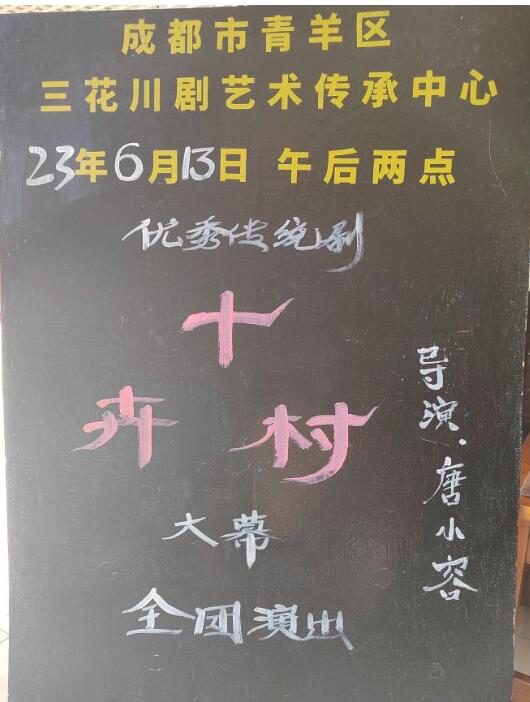 成都市青羊区
三花川剧艺术传承中心
23年6月13日 午后两点
优秀传统剧
十
卉村
大幕
全团演出
导演·唐小容